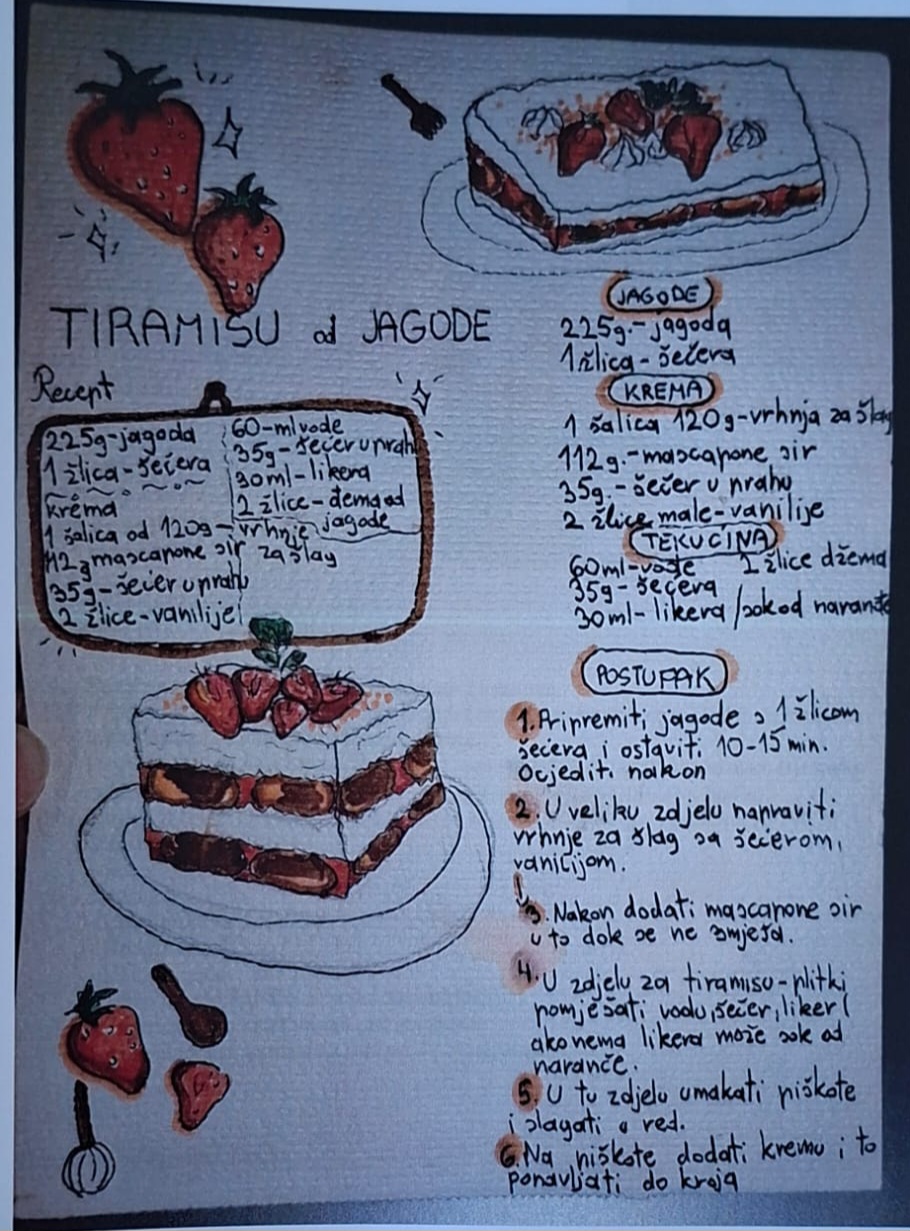 TIRAMISU od JAGODE
Recept
225g-jagoda
1 žlica-šećera
krema
1 šalica od 120g-vrhnje za šlag
112g mascapone sir
35g-šećer u prahu
2 žlice-vanilije
60-ml vode
35g-šećer u prah
30ml-likera
2 žlice-dema od
jagode
JAGODE
225g.-jagoda
1 žlica-šećera
KREMA
1 šalica 120g-vrhnja za šlag
112g.-mascapone sir
35g.-šećer u prahu
2 žlice male-vanilije
TEKUĆINA
60ml-vode 2 žlice džema
35g-šećera
30ml-likera/sok od naranče
POSTUPAK
1. Pripremiti jagode s 1 žlicom
šećera i ostaviti 10-15 min.
Ocjediti nakon
2. U veliku zdjelu napraviti
vrhnje za šlag sa šećerom,
vanilijom.
3. Nakon dodati mascapone sir
u to dok se ne smješa.
4. U zdjelu za tiramisu-plitki
pomješati vodu, šećer, liker (
ako nema likera može sok od
naranče.
5. U tu zdjelu umakati piškote
i slagati u red.
6. Na piškote dodati kremu i to
ponavljati do kraja